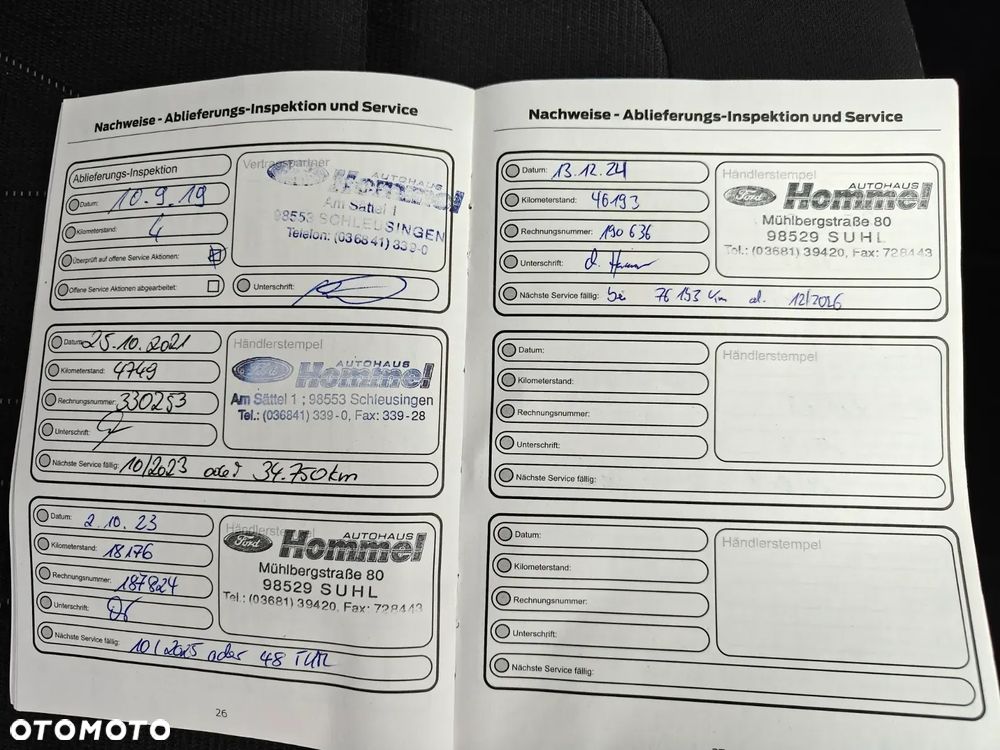 Nachweise - Ablieferungs-Inspektion und Service
Ablieferungs-Inspektion
Datum: 10.9.19
Kilometerstand: 4
Überprüft auf offene Service Aktionen:
Offene Service Aktionen abgearbeitet:
Vertragspartner
AUTOHAUS
Hommel
Am Sättel 1
98553 SCHLEUSINGEN
Telefon: (036841) 339-0
Unterschrift:
Datum: 25.10.2021
Kilometerstand: 4749
Rechnungsnummer: 330253
Unterschrift:
Händlerstempel
Ford
AUTOHAUS
Hommel
Am Sättel 1 ; 98553 Schleusingen
Tel.: (036841) 339-0, Fax: 339-28
Nächste Service fällig: 10/2023 oder 34.750km
Datum: 2.10.23
Kilometerstand: 18176
Rechnungsnummer: 187824
Unterschrift:
Händlerstempel
Ford
AUTOHAUS
Hommel
Mühlbergstraße 80
98529 SUHL
Tel.: (03681) 39420, Fax: 728443
Nächste Service fällig: 10/2025 oder 48
26
Nachweise - Ablieferungs-Inspektion und Service
Datum: 13.12.24
Kilometerstand: 46193
Rechnungsnummer: 190636
Unterschrift:
Händlerstempel
Ford
AUTOHAUS
Hommel
Mühlbergstraße 80
98529 SUHL
Tel.: (03681) 39420, Fax: 728443
Nächste Service fällig: bei 76193 km od. 12/2026
Datum:
Kilometerstand:
Rechnungsnummer:
Unterschrift:
Händlerstempel
Nächste Service fällig:
Datum:
Kilometerstand:
Rechnungsnummer:
Unterschrift:
Händlerstempel
Nächste Service fällig:
OTOMOTO